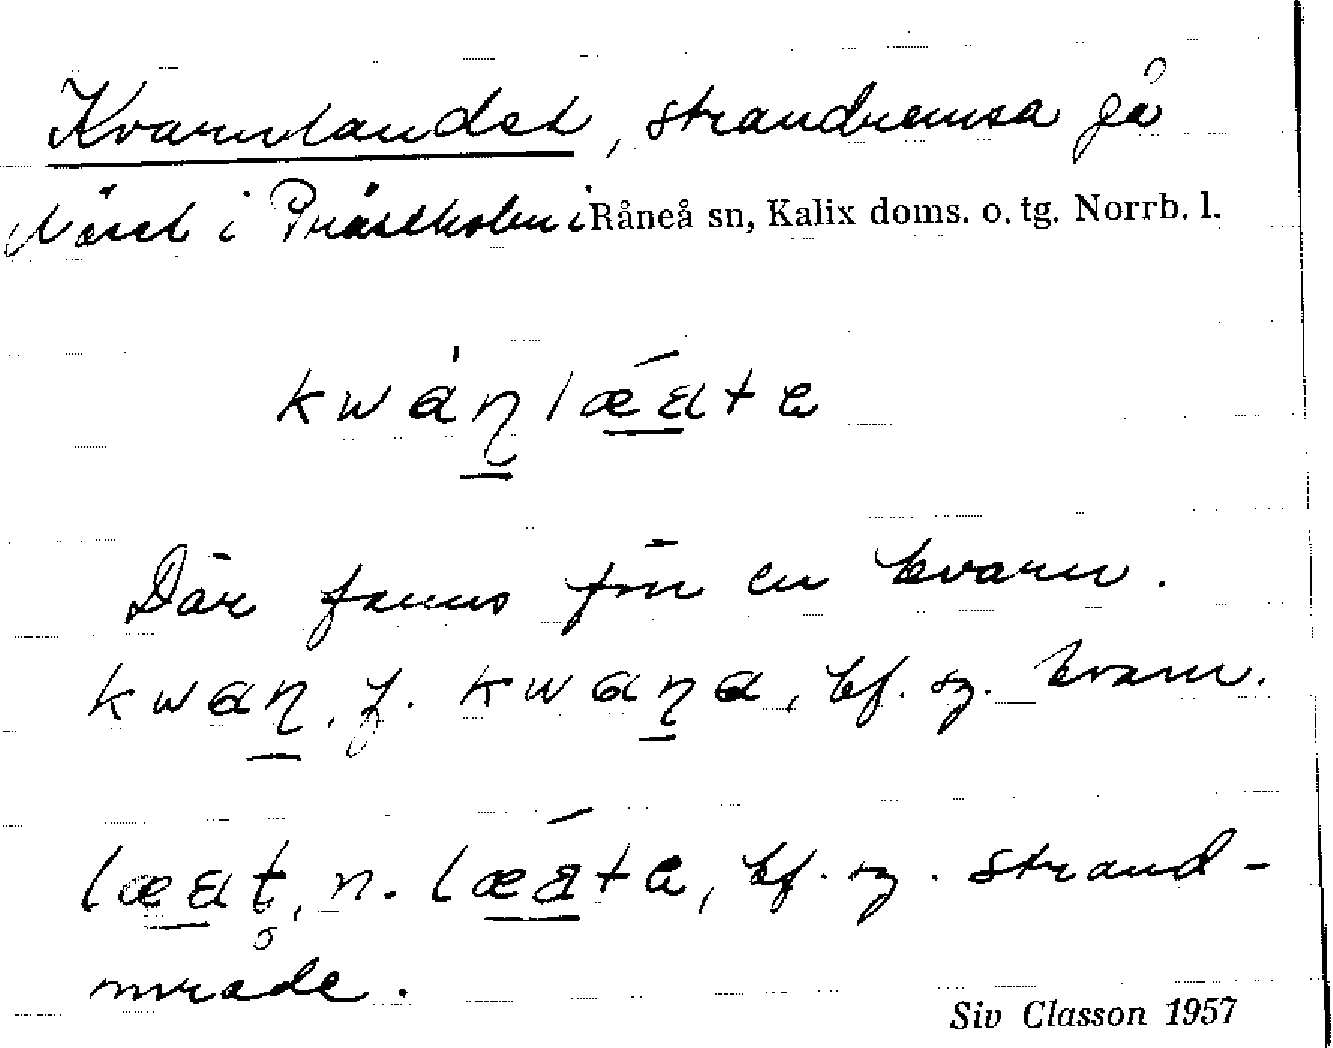 Kvarnlandet, strandremsa på
Näset i Prästholm i Råneå sn, Kalix doms. o. tg. Norrb. l.
kwàɳlǽate
Där fanns förr en kvarn.
kwaɳ, f. kwaɳa, bf. sg. kvarn.
læat̥, n. læáte, bf. sg. strand-
område.
Siv Classon 1957